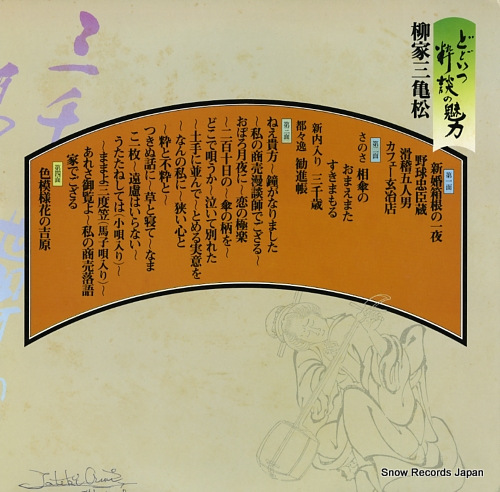 どどいつ
粋談の魅力
柳家三亀松
第一面
新婚箱根の一夜
野球忠臣蔵
滑稽五人男
カフェー玄冶店
第二面
さのさ 相傘の
おまえまた
すきまもる
新内入り 三千歳
都々逸 勧進帳
第三面
ねえ貴方〜鐘がなりました
〜私の商売漫談師でござる〜
おぼろ月夜に〜恋の極楽
〜二百十日の〜傘の柄を〜
どこで唄うか〜泣いて別れた
〜土手に並んで〜とめる実意を
〜なんの私に〜狭い心と
〜粋と不粋と〜
つきぬ話に〜草と寝て〜なま
こ二枚〜遠慮はいらない〜
うたたねしては(小唄入り)〜
〜ままよ三度笠(馬子唄入り)〜
あれさ御覧よ〜私の商売落語
家でござる
第四面
色模様花の吉原
三千
Snow Records Japan